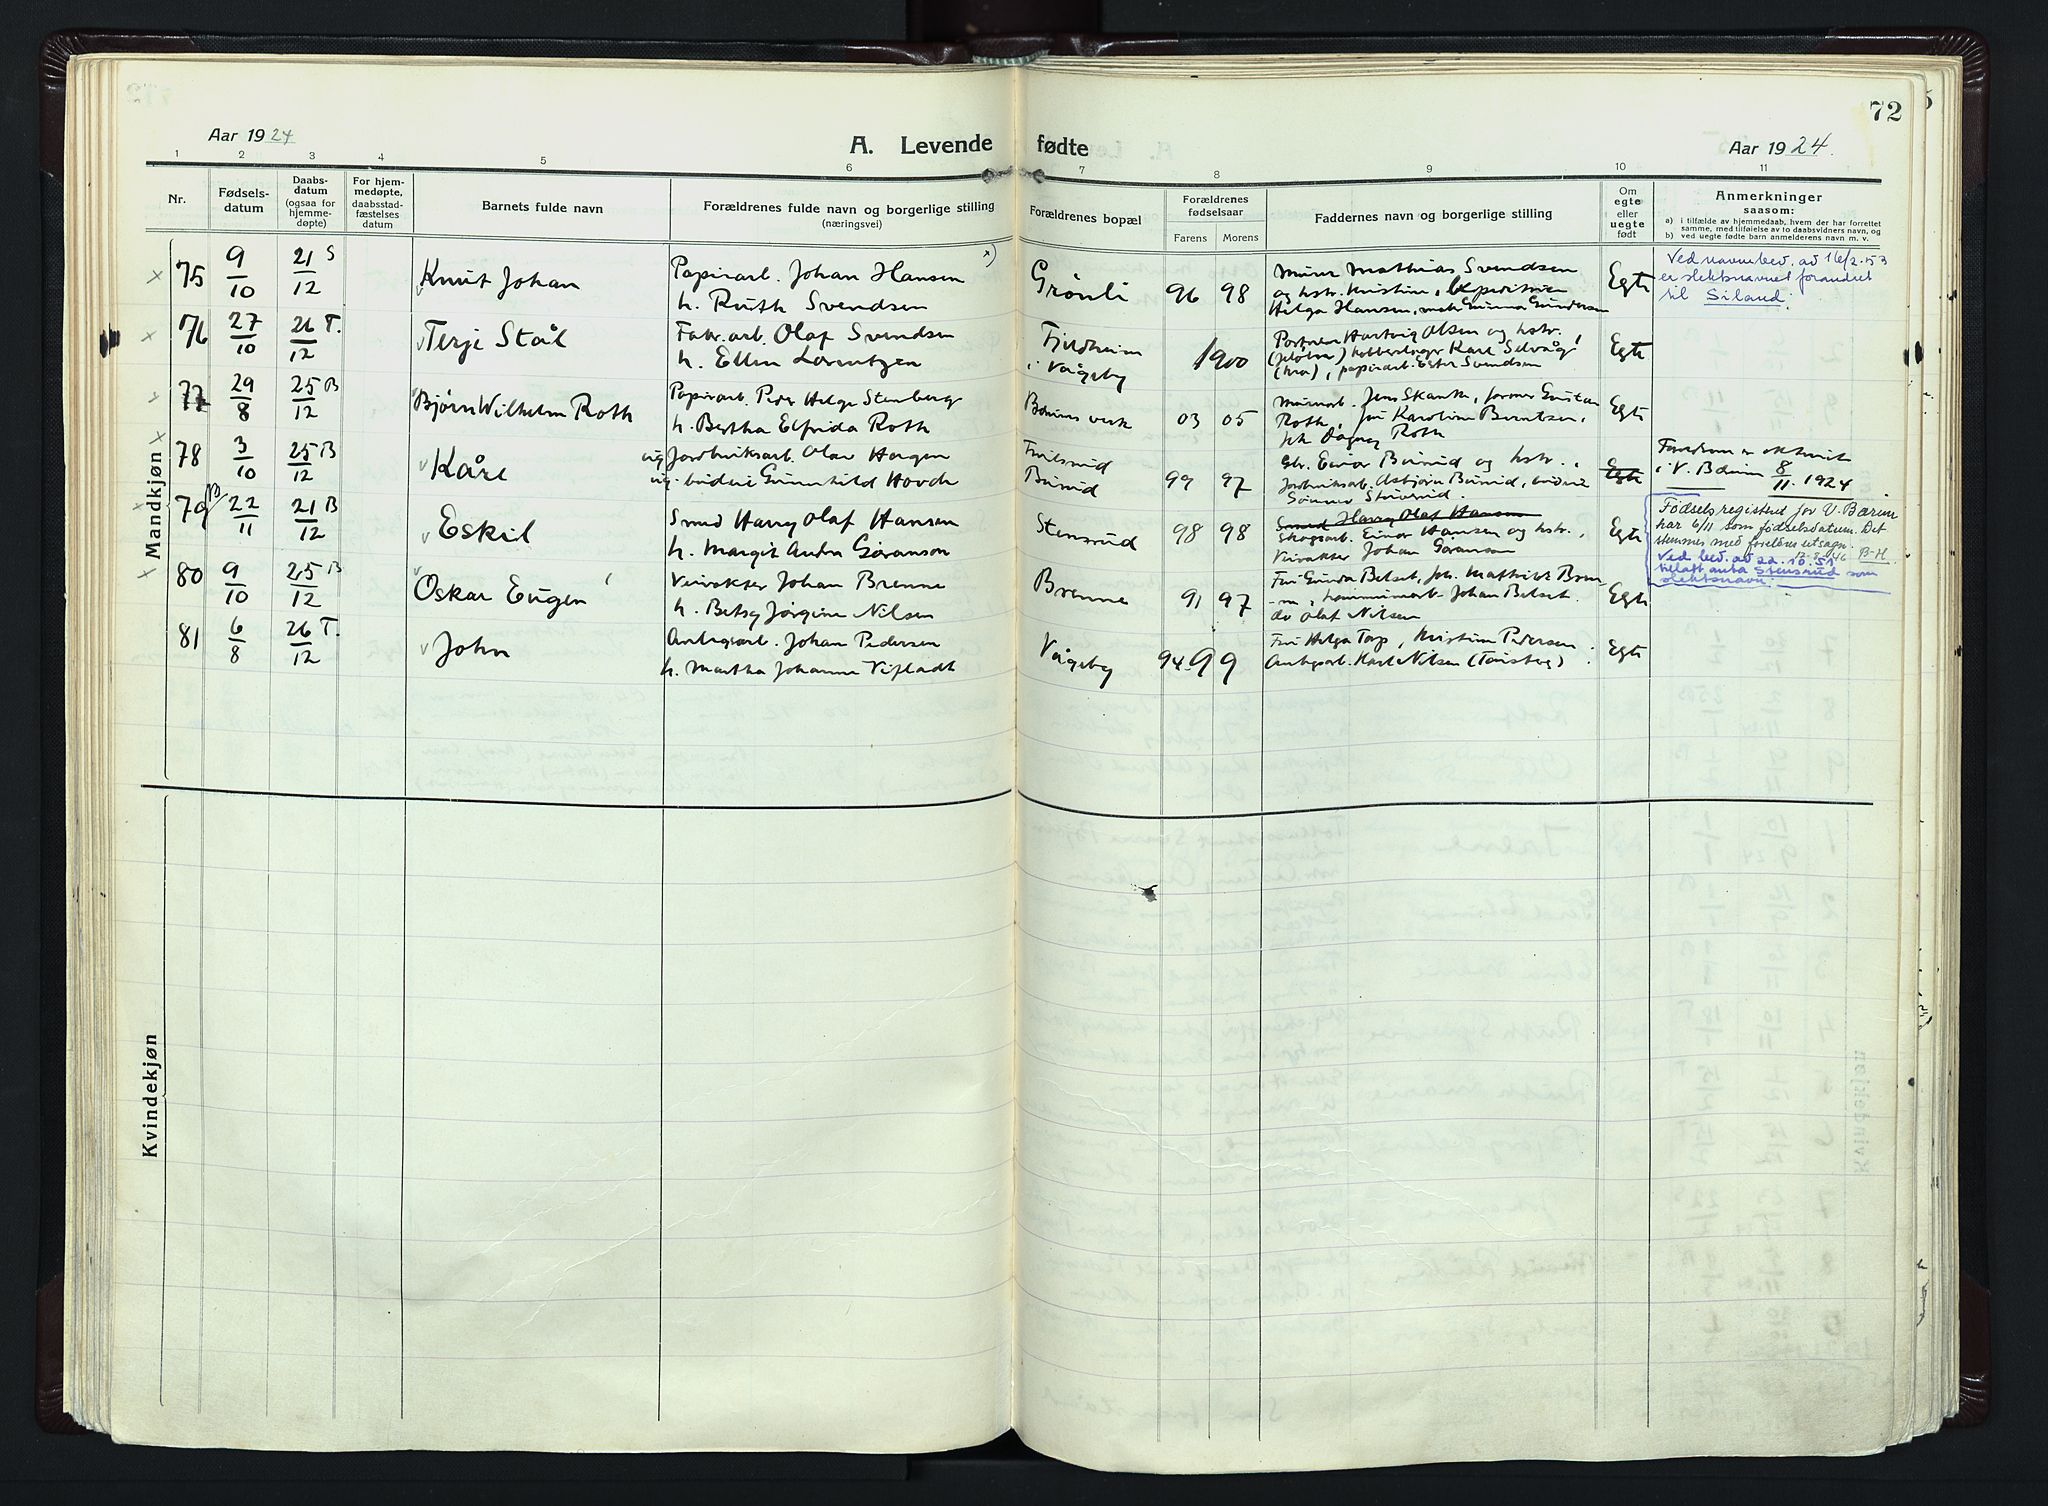 72
Aar 1924
A. Levende
fødte
Aar 1924.
1 2 3 4 5 6 7 8 9 10 11
Nr.
Fødsels-
datum
Daabs-
datum
(ogsaa for
hjemme-
døpte)
For hjem-
medøpte,
daabsstad-
fæstelses
datum
Barnets fulde navn
Forældrenes fulde navn og borgerlige stilling
(næringsvei)
Forældrenes bopæl
Forældrenes
fødselsaar
Farens Morens
Faddernes navn og borgerlige stilling
Om
egte
eller
uegte
født
Anmerkninger
saasom:
a) i tilfælde av hjemmedaab, hvem der har forrettet
samme, med tilføielse av to daabsvidners navn, og
b) ved uegte fødte barn anmelderens navn m. v.
Mandkjøn
75 9/10 21/12 S Knut Johan
Papirarb. Johan Hansen x)
h. Ruth Svendsen
Grønli 96 98
Murer Mathias Svendsen
og hstr. Kristine,
Helga Hansen, Gunda Gundersen
Egte
Ved navnebev. ad 16/2-53
er slektsnavnet forandret
til Siland.
76 27/10 26/12 T. Terje Stål
Fabr.arb. Olaf Svendsen
h. Ellen Lorentzen
Fjeldheim
i Vågsby 1900
Portner Hartvig Olsen og hstr.
Karl Selvåg
papirarb. Ester Svendsen
Egte
77 29/8 25/12 B Bjørn Wilhelm Roth
Papirarb. Peder Helge Stenberg
h. Bertha Elfrida Roth
Bærums verk 03 05
Murarb. Jens Skank, former Gustav
Roth, fru Karoline Berntsen,
frk Dagny Roth
Egte
78 3/10 25/12 B Kåre
ug. Jordbruksarb. Olav Horgen
ug. budeie Gunnhild Hovde
Burud 99 97
Gbr. Einar Burud og hstr.,
Jordbruksarb. Asbjørn Burud, budeie
Egte
Foreldrene er ekteviet
i V. Bærum 8/11. 1924
79 22/11 21/12 B Eskil
Smed Harry Olaf Hansen
h. Margit Andra Göranson
Stensrud 98 98
Smed Harry Olaf Hansen
Skogsarb. Einar Hansen og hstr.,
Veivokter Johan Göranson
Egte
Fødselsregisteret for V. Bærum
har 6/11 som fødselsdatum. Det
stemmer med foreldres utsagn.
12-8-46 B-H.
Ved bev. av 22.10.51
tillatt anta Stensrud som
slektsnavn.
80 9/10 25/12 B Oskar Eugen
Veivokter Johan Brenne
h. Betsy Jørgine Nilsen
Brenne 91 97
Fru Gunda Belset, Mathilde Bren
ne, kommunearb. Johan Belset.
do Olaf Nilsen
Egte
81 6/8 26/12 T. John
Anlegsarb. Johan Pedersen
h. Martha Johanne Vifladt
Vågsby 94 99
Fru Helga Torp, Kristine Pedersen
Anlegsarb. Karl Nilsen (Tønsberg)
Egte
Kvindekjøn